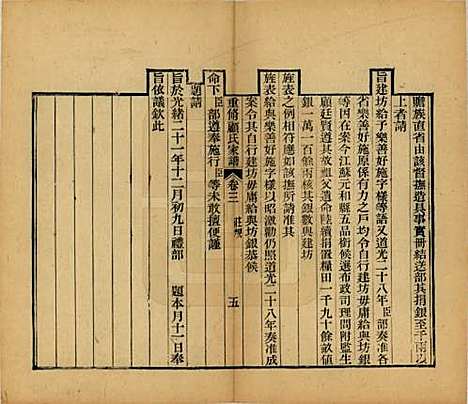 贍族直省由該督撫造具事實冊結送部其捐銀至千兩以
上者請
旨建坊給予樂善好施字樣等語又道光二十八年臣部奏准各
省樂善好施原係有力之戶均令自行建坊毋庸給與坊銀
等因在案今江蘇元和縣五品銜候選布政司理問附監生
顧廷賢道其故祖父遺命陸續捐置糧田一千九十餘畝值
銀一萬一百餘兩核其銀數與建坊
旌表之例相符應如該撫所請准其
旌表給與樂善好施字樣以昭激勸仍照道光二十八年奏准成
案令其自行建坊毋庸給與坊銀恭候
重修顧氏家譜 卷三 莊規 五
命下臣部遵奉施行臣等未敢擅便謹
題請
旨於光緒二十一年十二月初九日禮部 題本月十一日奉
旨依議欽此